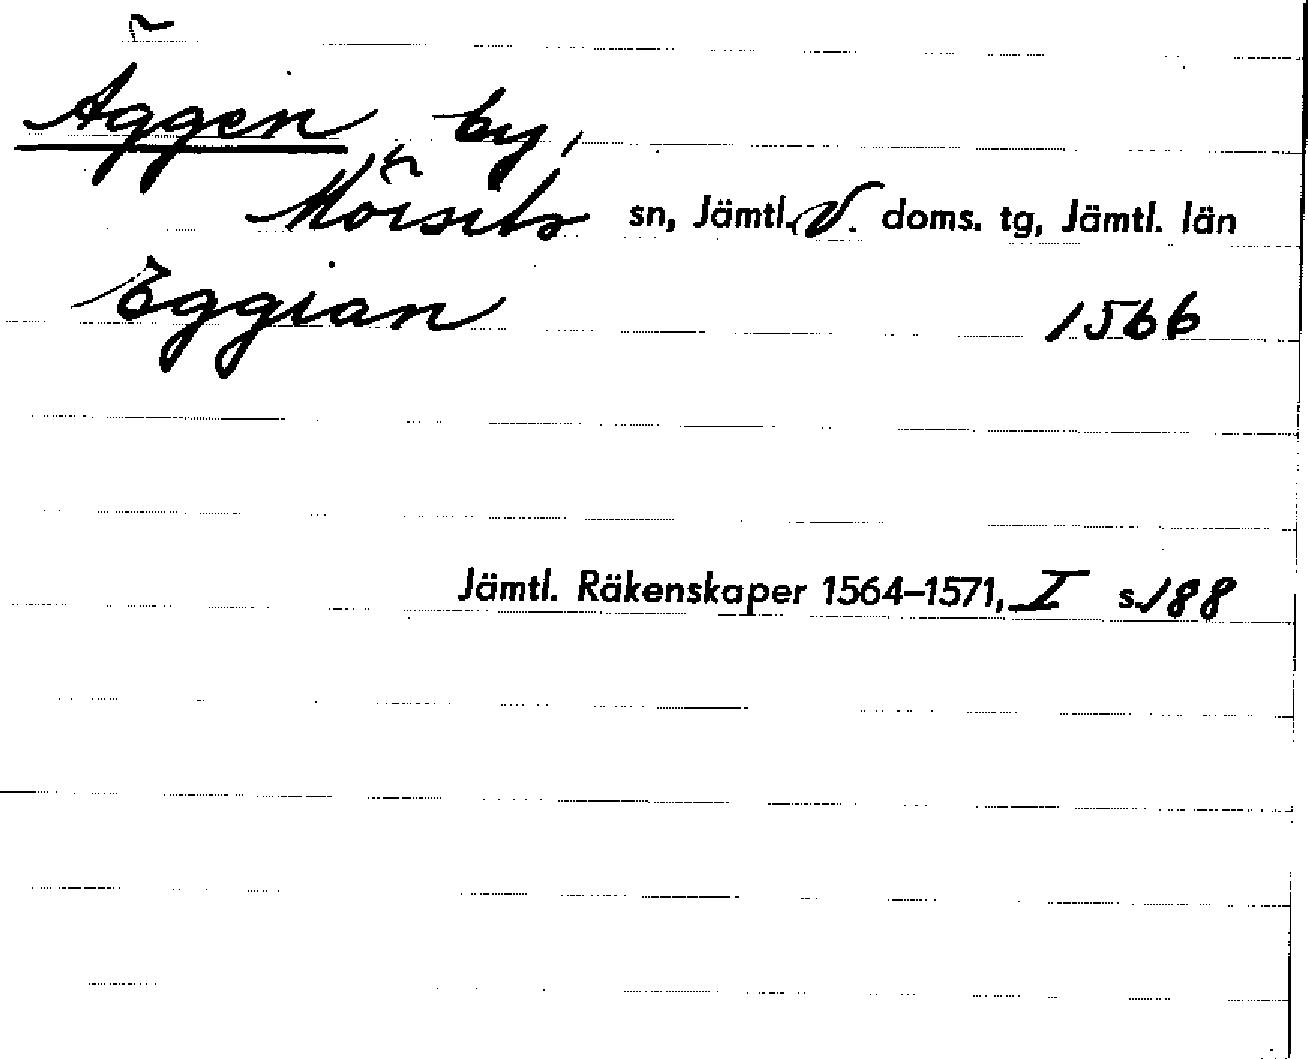 Äggen by,
Mörsils sn, Jämtl. V. doms. tg, Jämtl. län
Eggian 1566
Jämtl. Räkenskaper 1564–1571, I s. 188